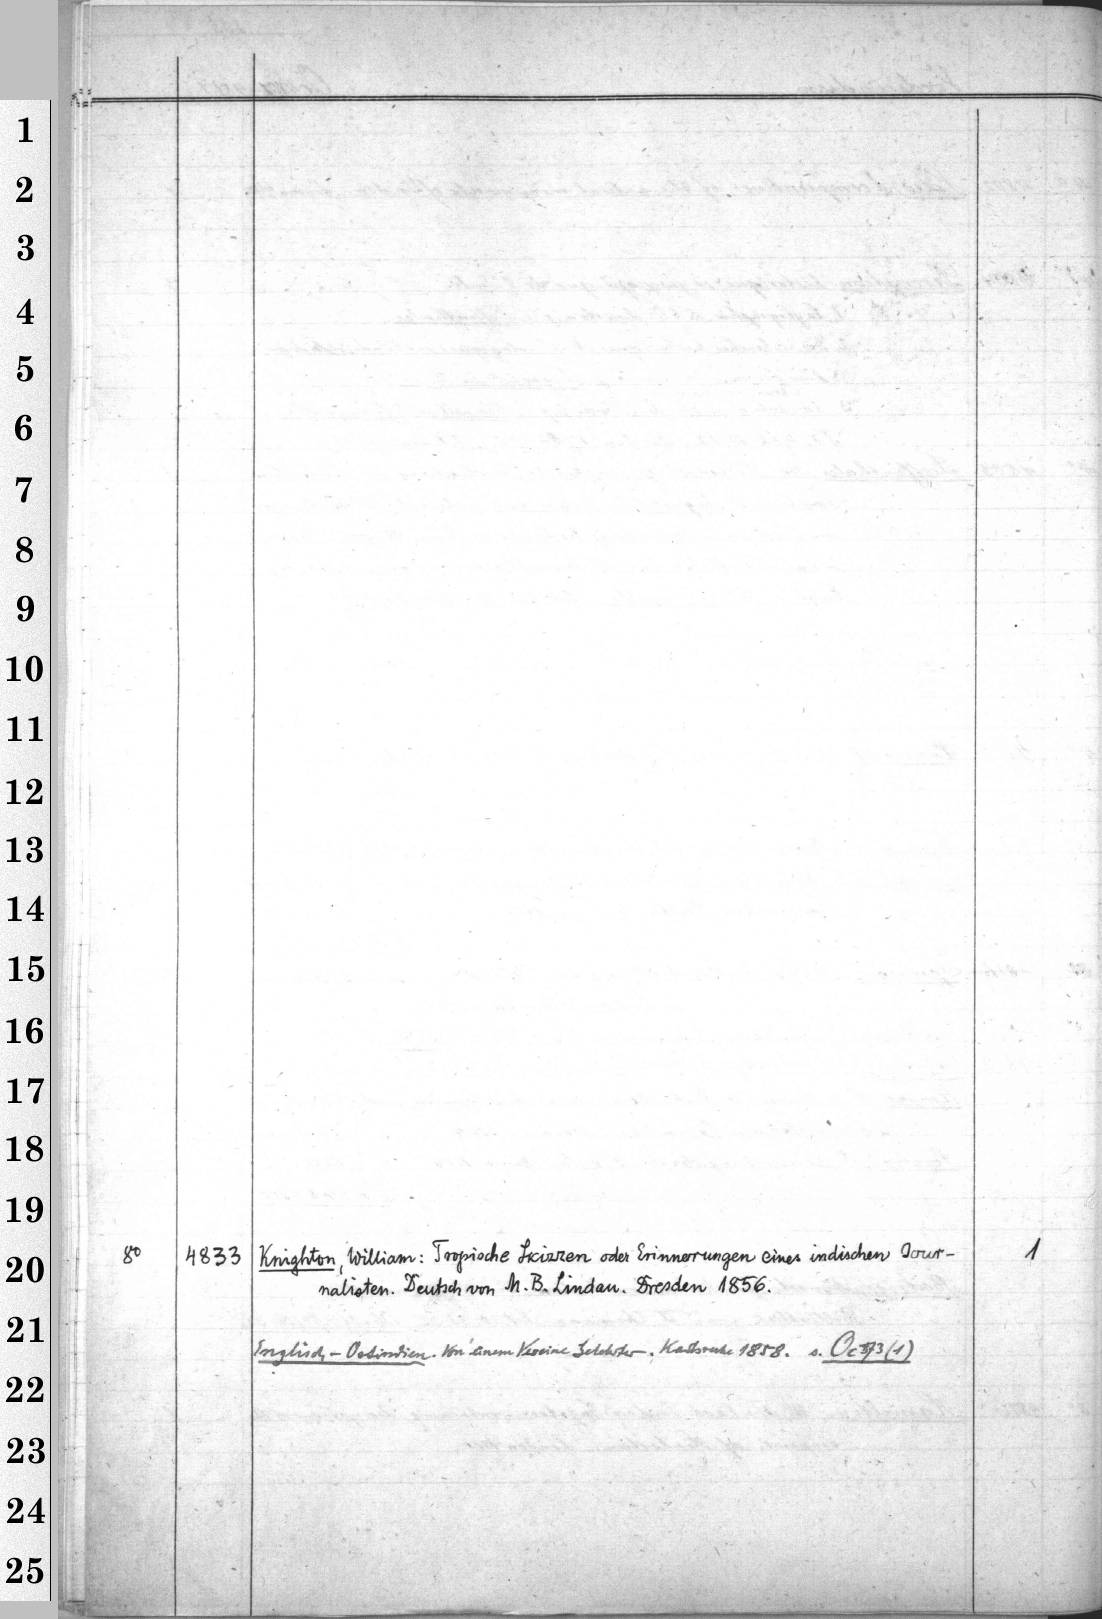 1
2
3
4
5
6
7
8
9
10
11
12
13
14
15
16
17
18
19
8° 4833 Knighton, William: Tropische Skizzen oder Erinnerungen eines indischen Jour- 1
20
nalisten. Deutsch von M. B. Lindau. Dresden 1856.
21
Englisch-Ostindien. Von einem Vereine Gelehrter. Karlsruhe 1858. s. Oc
22
23
24
25